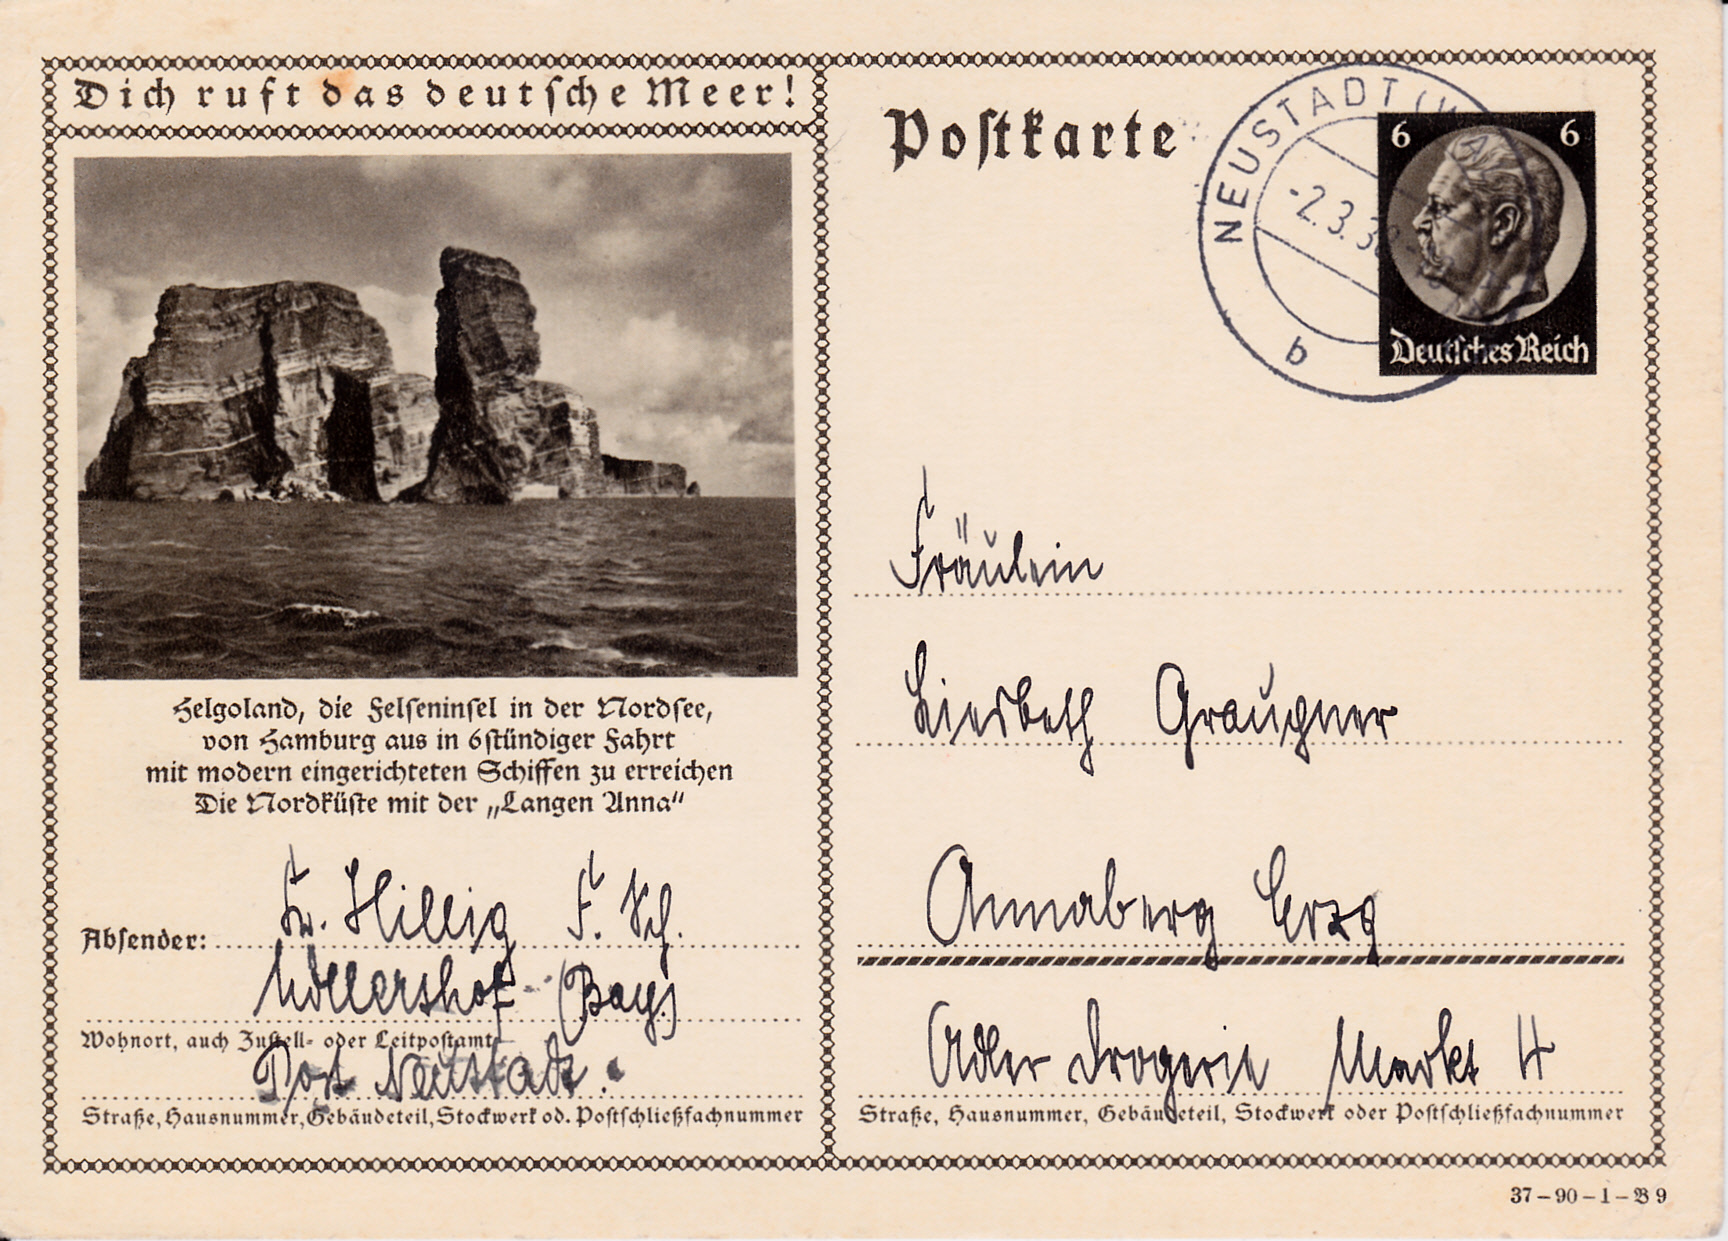 Dich ruft das deutsche Meer!
Helgoland, die Felseninsel in der Nordsee,
von Hamburg aus in 6stündiger Fahrt
mit modern eingerichteten Schiffen zu erreichen
Die Nordküste mit der „Langen Anna“
Absender: Fr. Hillig F. Sch.
Adlershof (Bay.)
Wohnort, auch Zustell- oder Leitpostamt
Post Neustadt.
Straße, Hausnummer, Gebäudeteil, Stockwerk od. Postschließfachnummer
Postkarte
NEUSTADT (WA
-2.3.3
b
6 6
Deutsches Reich
Fräulein
Liesbeth Graupner
Annaberg Erzg
Adler Drogerie Markt 4
Straße, Hausnummer, Gebäudeteil, Stockwerk oder Postschließfachnummer
37-90-1-B9